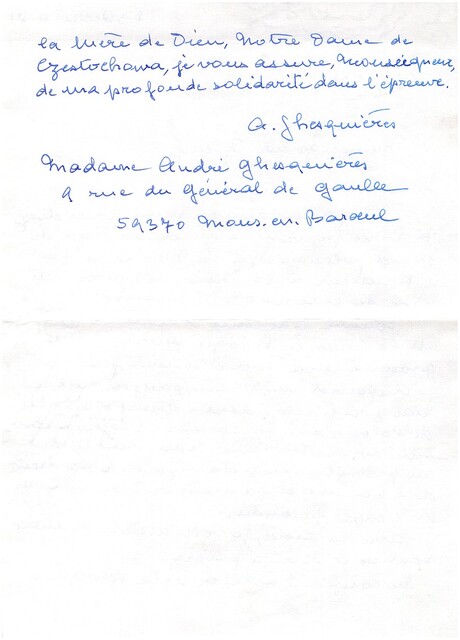 la Mère de Dieu, Notre Dame de
Czestochowa, je vous assure, Monseigneur,
de ma profonde solidarité dans l'épreuve.
A. Ghesquières
Madame André Ghesquières
9 rue du Général de Gaulle
59370 Mons-en-Baroeul